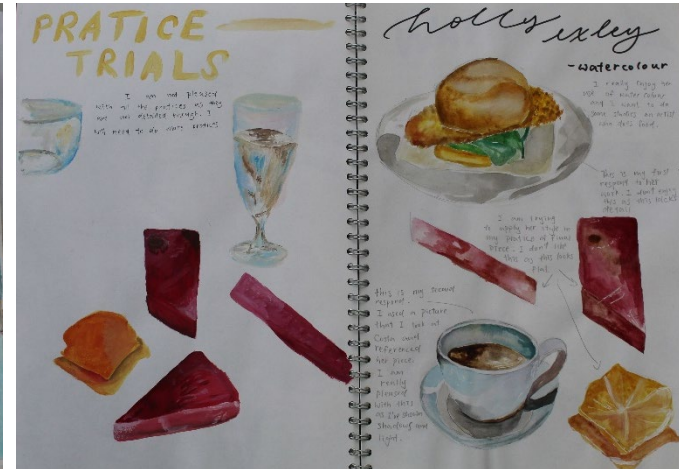 PRATICE
TRIALS
I am not pleased
with all the pratices as they
are not detailed enough. I
will need to do more pratices
holly
exley
-watercolour
I really enjoy the
use of watercolour
and I want to do
some studies on artist
who does food.
This is my first
respond to her
work. I don't enjoy
this as this lacks
detail
I was trying
to apply her style in
my pratice of Final
piece. I don't like
this as this looks
flat.
this is my second
respond.
I used a picture
that I took at
Costa and
referenced
her piece.
I am
really
pleased
with this
as I've shown
shadows and
light.